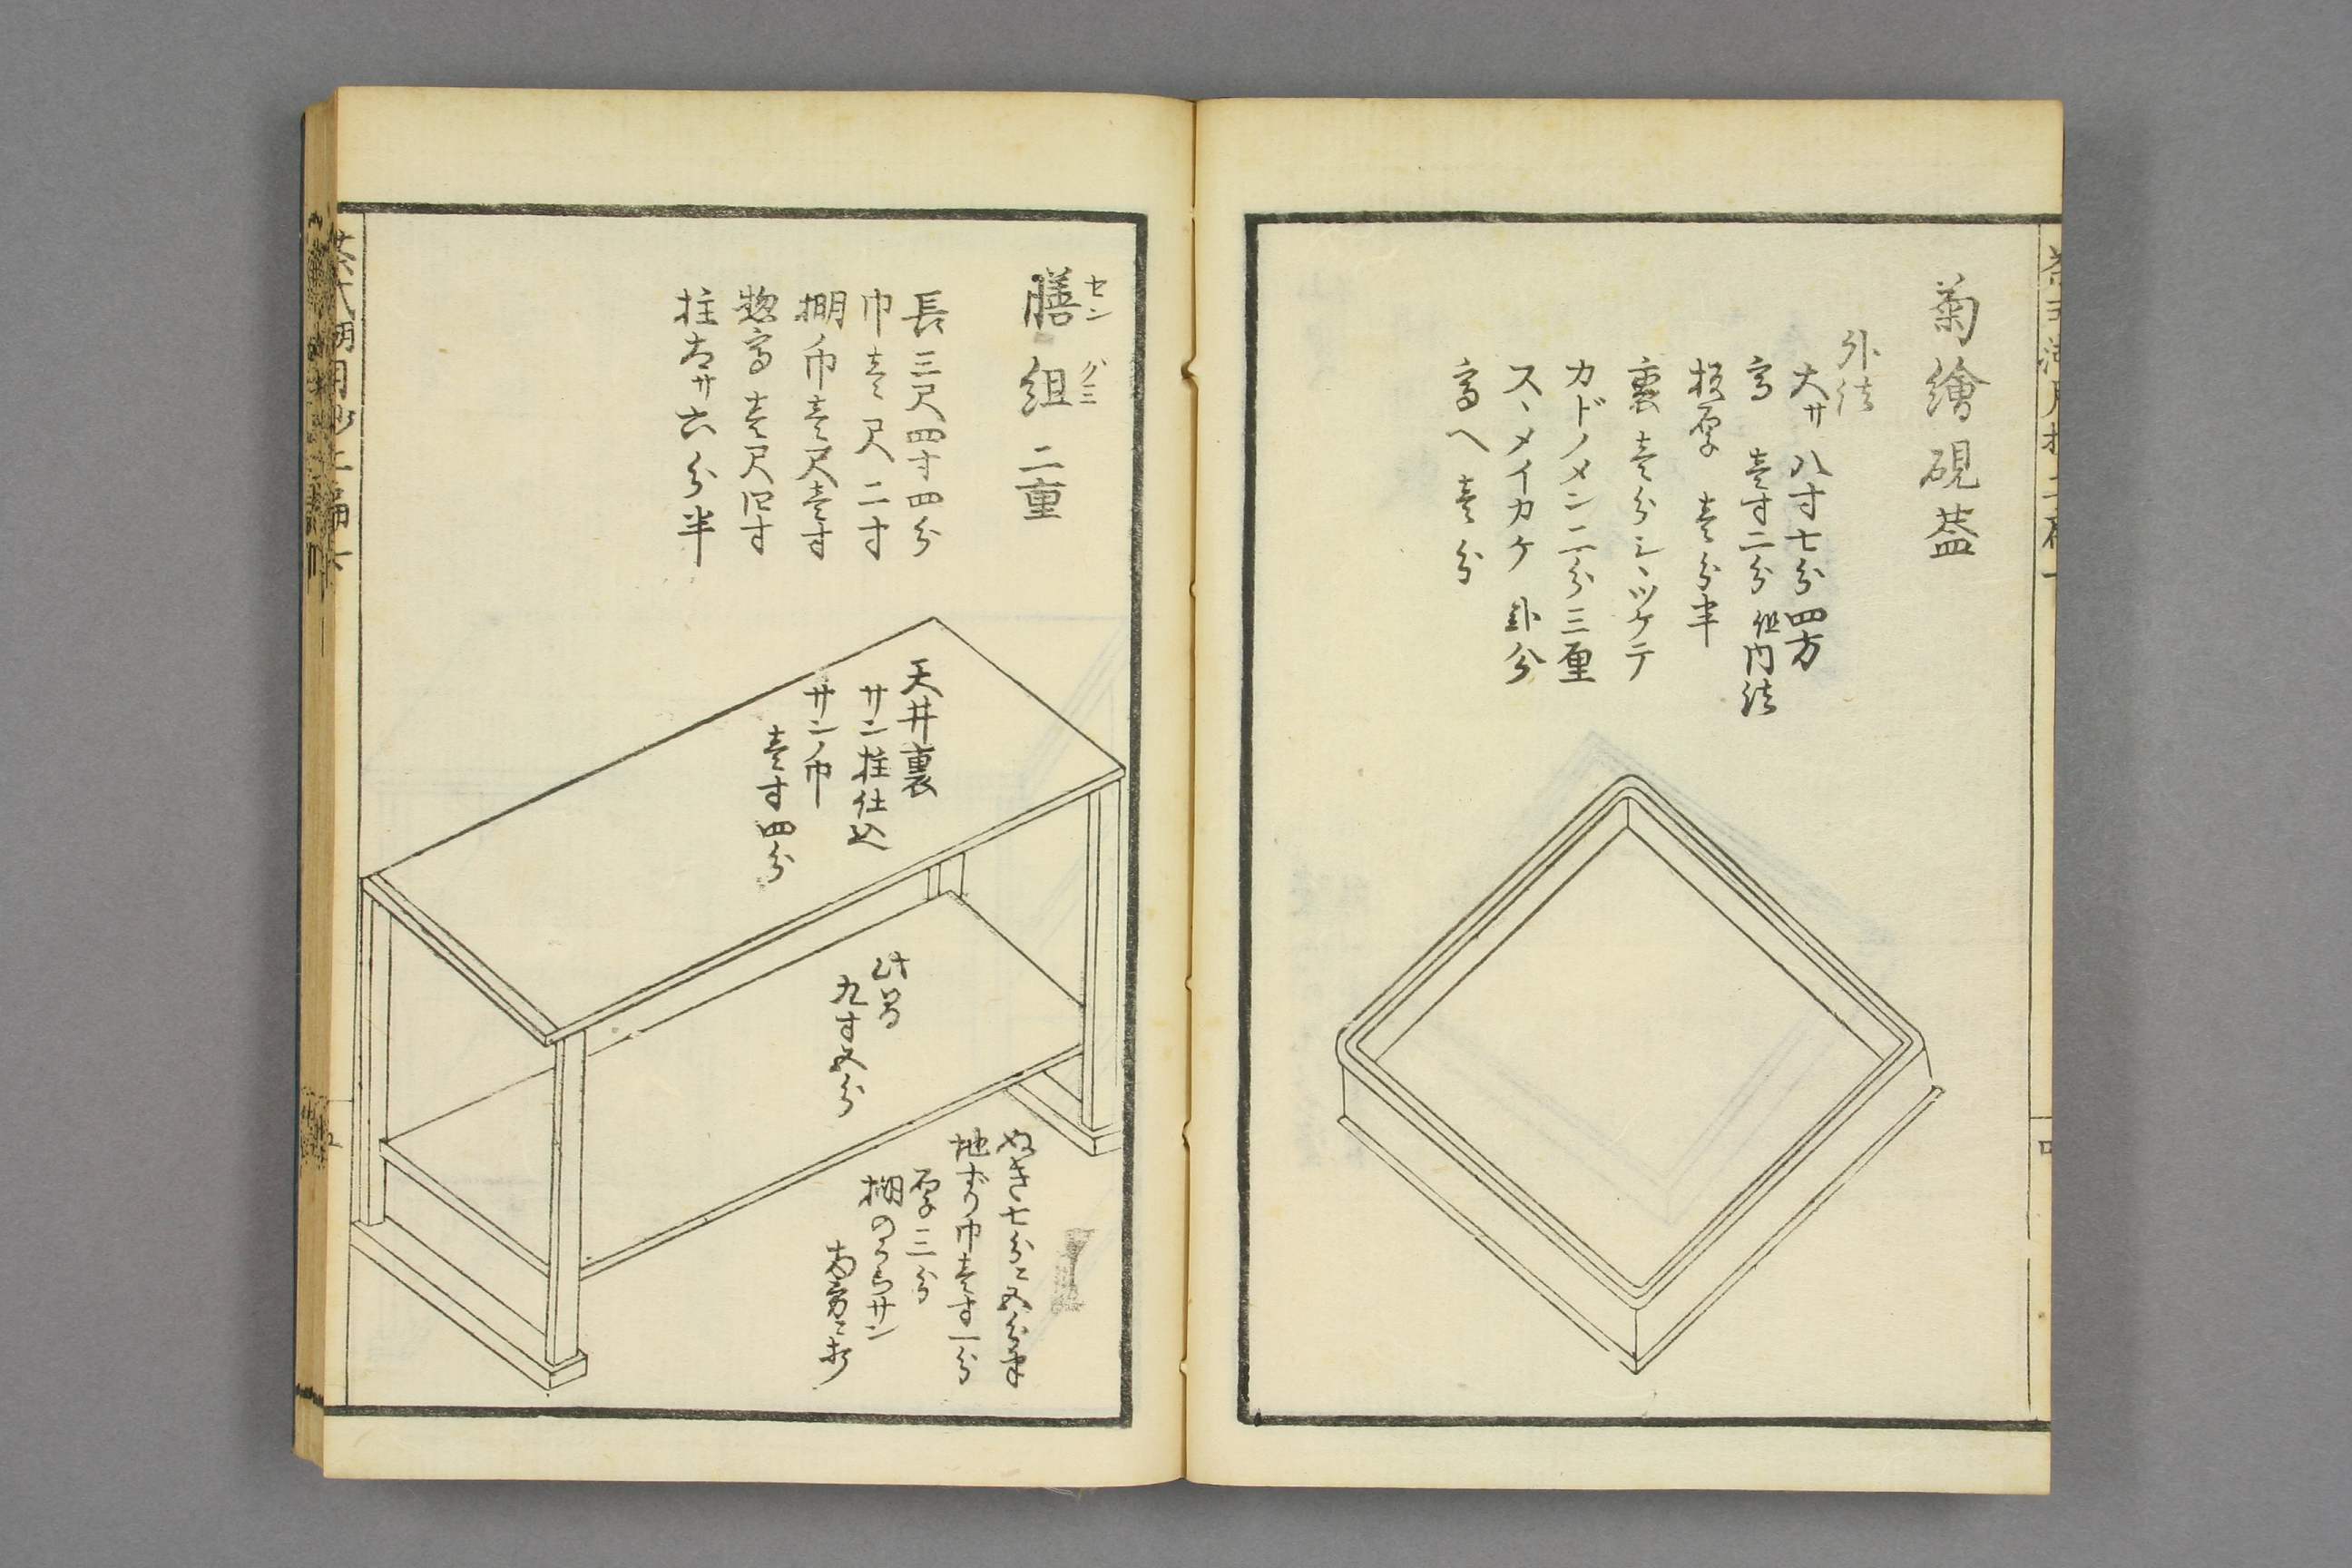 菊繪硯葢
外法
大サ 八寸七分四方
高 壹寸二分 但内法
板厚 壹分半
裏壹分シヽツケテ
カドノメン二分三厘
スヽメイカケ 卦分
高ヘ 壹分
膳組 二重
セン クミ
長三尺四寸四分
巾壹尺二寸
棚ノ巾壹尺壹寸
惣高壹尺四寸
柱太サ六分半
天井裏
サン柱仕込
サンノ巾
壹寸四分
此高
九寸五分
ぬき七分ニ五分半
地ずり巾壹寸一分
厚三分
棚のうらサン